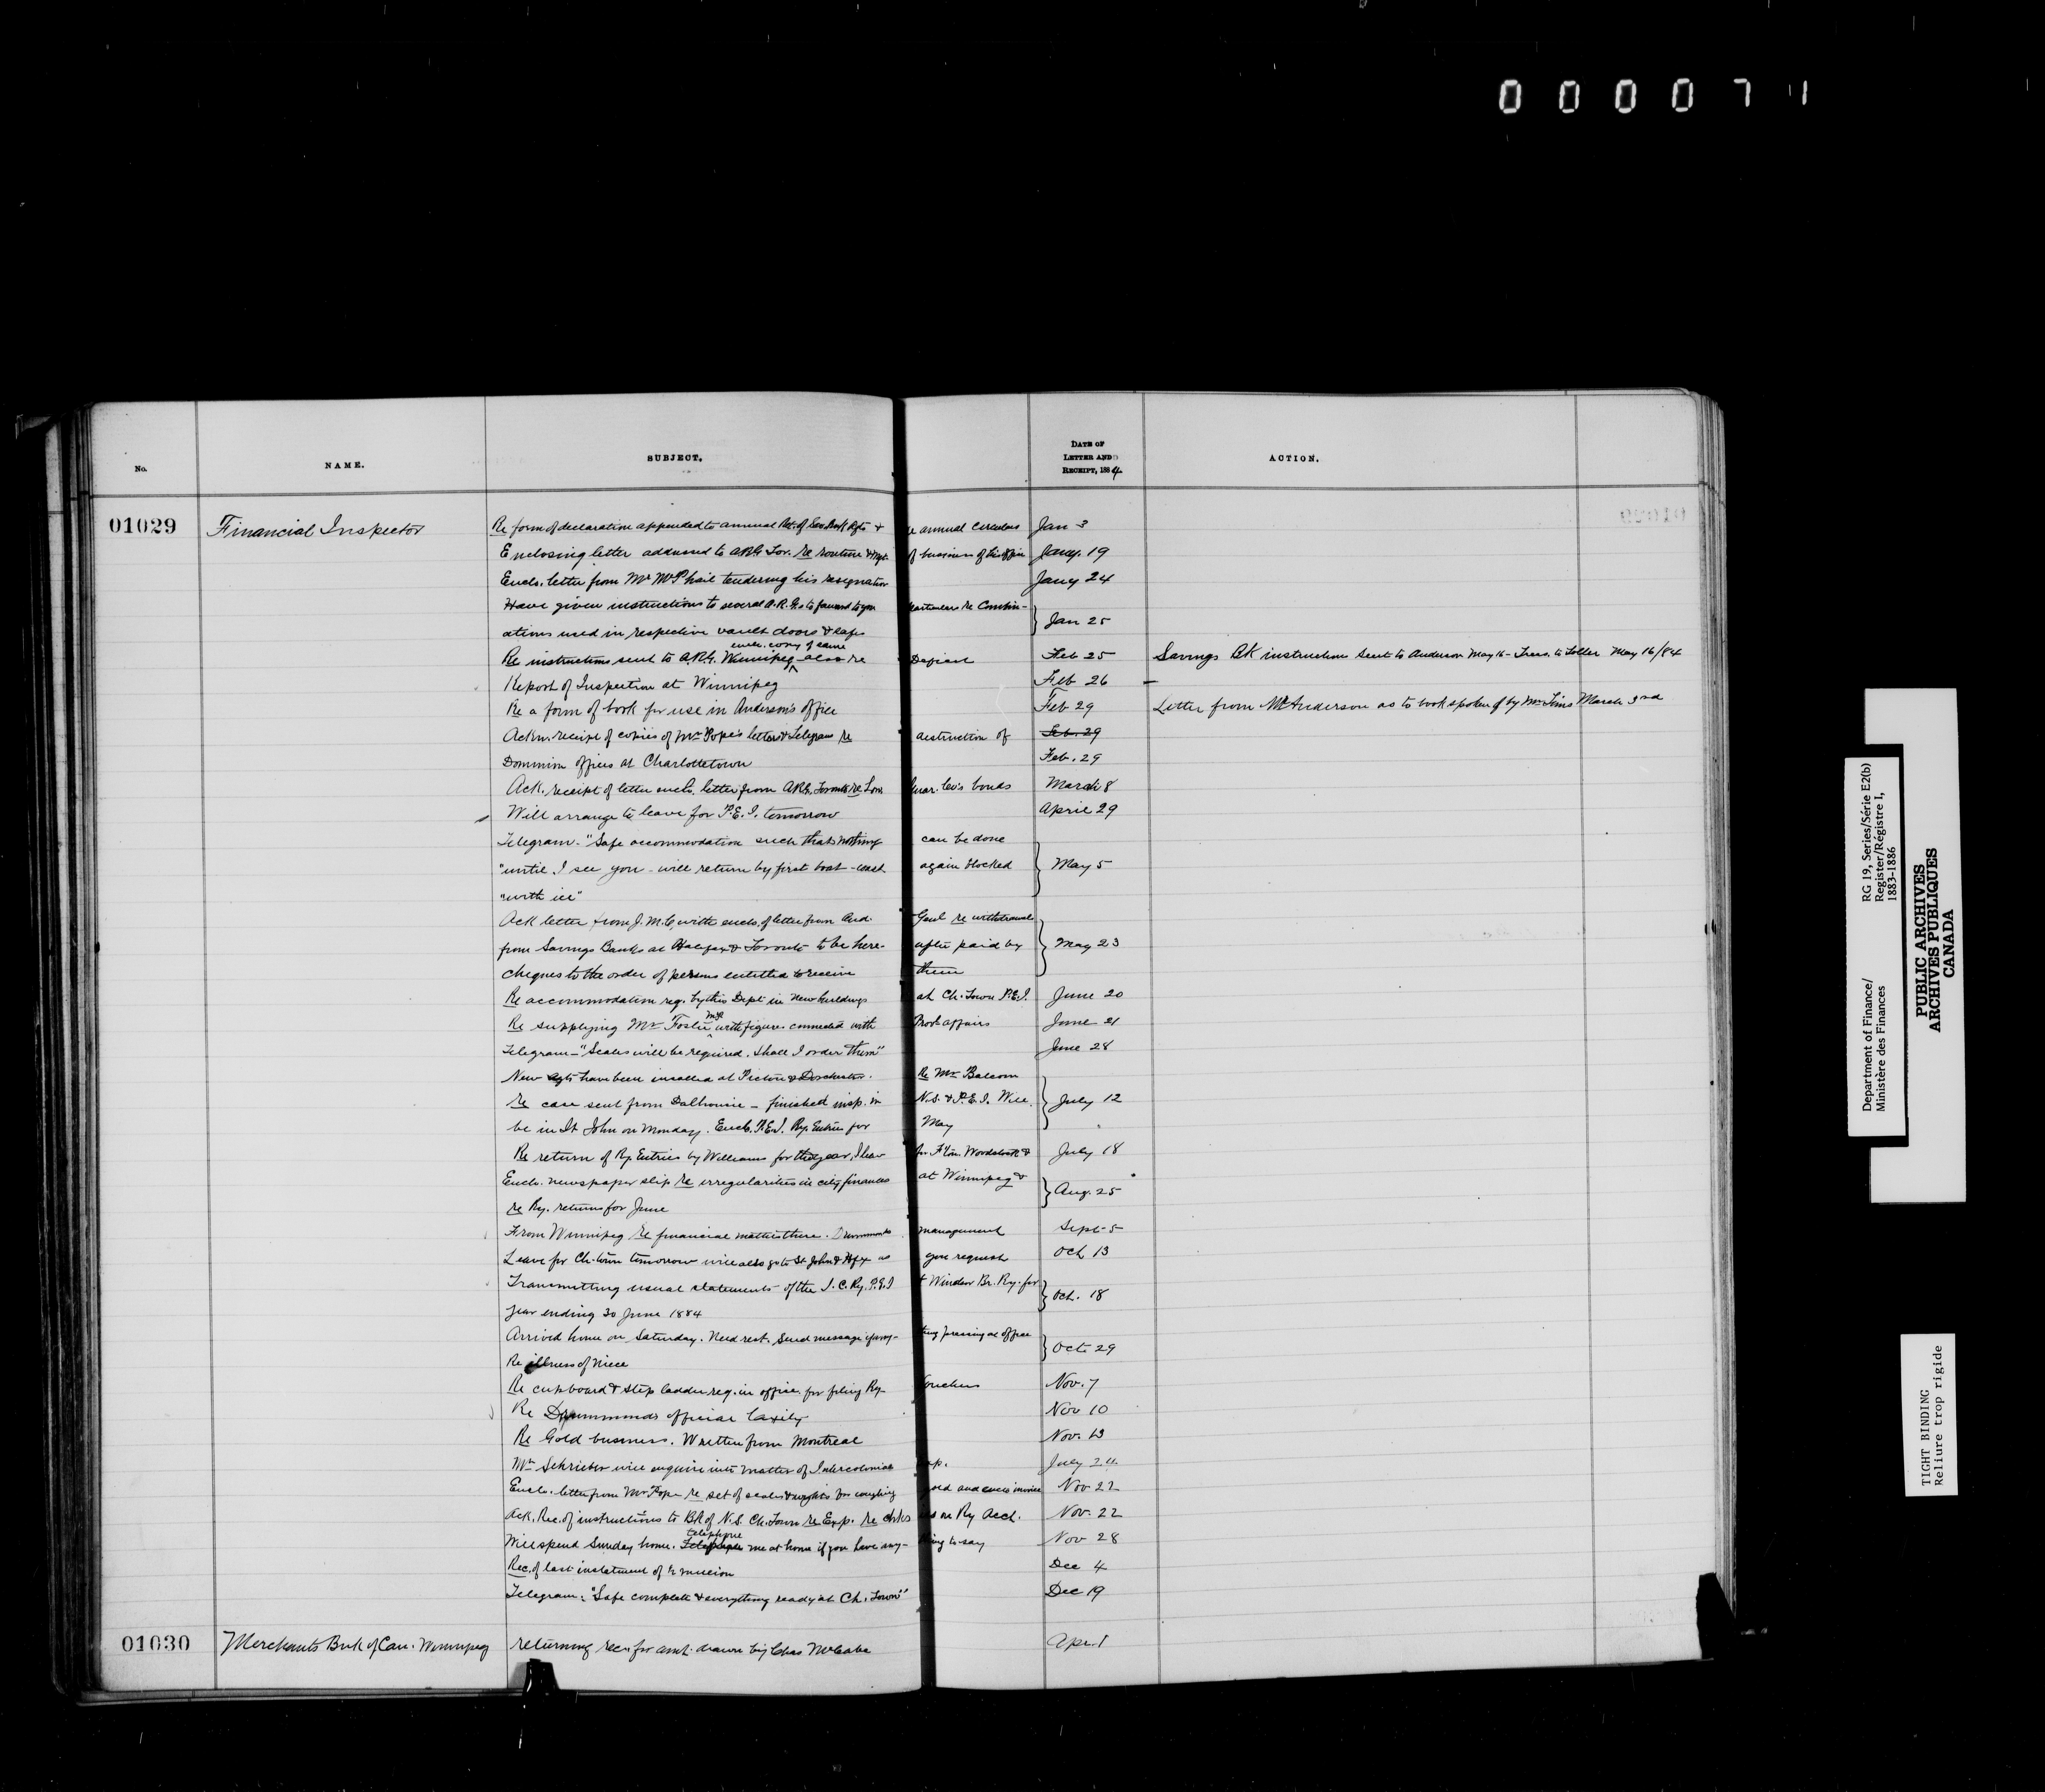 0 0 0 0 7 1
No. NAME. SUBJECT. DATE OF LETTER AND RECEIPT, 1884 ACTION.
01029 Financial Inspector Re form of declaration appended to annual Ret. of Sav. Bank Agts & re annual circulars Jan 3
Enclosing letter addressed to ARG Tor. re routine & mgt. of business of his office Jany. 19
Encls. letter from Mr McPhail tendering his resignation Jany 24
Have given instructions to several A.R.Gs to forward to you particulars re Combin-
ations used in respective vault doors & safes Jan 25
encl. copy of same
Re instructions sent to A.R.G. Winnipeg also re Feb 25 Savings Bk instructions sent to Anderson May 16 - Trans. to Toller May 16/84
Report of Inspection at Winnipeg Feb 26 —
Re a form of book for use in Anderson's office Feb 29 Letter from Mr Anderson as to book spoken of by Mr Tims March 3rd
Ackn. receipt of copies of Mr Pope's letter & Telegram re destruction of Feb. 29
Dominion offices at Charlottetown Feb. 29
Ack. receipt of letter encls. letter from ARG. Toronto re Lon. Guar. Co's bonds March 8
Will arrange to leave for P.E.I. tomorrow April 29
Telegram. "Safe accommodation such that nothing can be done
"until I see you - will return by first boat - coast again blocked May 5
"with ice"
Ack letter from J.M.C. with encls. of letter from Aud. Genl re withdrawals
from Savings Banks at Halifax & Toronto to be here- after paid by May 23
cheques to the order of persons entitled to receive them
Re accommodation req. by this Dept in New buildings at Ch. Town P.E.I. June 20
Re supplying Mr Foster M.P. with figures connected with Prov. affairs June 21
Telegram - "Scales will be required. Shall I order them" June 28
New agts have been installed at Pictou & Dorchester. Re Mr Balcom
re case sent from Dalhousie - finished insp. in N.S. & P.E.I. Will July 12
be in St John on Monday. Encls. P.E.I. Ry. Entries for May
Re return of Ry. Entries by Williams for the year, I leave for F'ton. Woodstock & July 18
Encls. newspaper slip re irregularities in city finances at Winnipeg &
re Ry. returns for June Aug. 25
From Winnipeg re financial matters there. Drummonds management Sept 5
Leave for Ch. town tomorrow will also go to St John & Hfx as you request Oct 13
Transmitting usual statements of the I.C. Ry. P.E.I & Windsor Br. Ry. for
year ending 30 June 1884 Oct. 18
Arrived home on Saturday. Need rest. Send message if any- thing pressing at office
Re illness of niece Oct. 29
Re cupboard & step ladder req. in office for filing Ry. Vouchers Nov. 7
Re Drummonds official laxity Nov 10
Re Gold business. Written from Montreal Nov. 13
Mr Schrieber will enquire into matter of Intercolonial July 24
Encls. letter from Mr Pope re set of scales & weights for weighing gold and encls invoice Nov 22
Ack. Rec. of instructions to Bk of N.S. Ch. Town re Exp. re chks on Ry Acct. Nov. 22
telephone
Will spend Sunday home. Telegraph me at home if you have any- thing to say Nov 28
Rec. of last instalment of ½ million Dec 4
Telegram: "Safe complete & everything ready at Ch. Town" Dec 19
01030 Merchants Bnk of Can. Winnipeg returning rec. for amt. drawn by Chas McCabe Apr. 1
Department of Finance/
Ministère des Finances
RG 19, Series/Série E2(b)
Register/Régistre 1,
1883-1886
PUBLIC ARCHIVES
ARCHIVES PUBLIQUES
CANADA
TIGHT BINDING
Reliure trop rigide